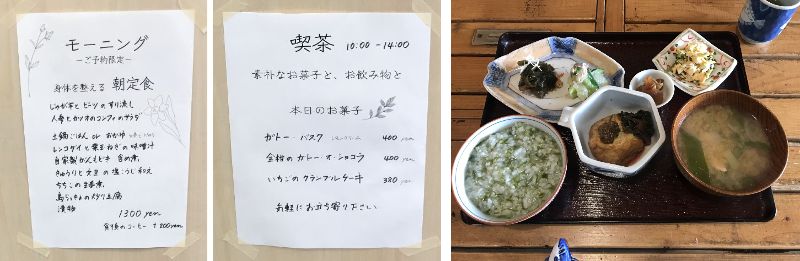 モーニング
－ご予約限定－
身体を整える 朝定食
じゃが芋とビーツのすり流し
人参とカツオのコンフィのサラダ
土鍋ごはん or おかゆ
レンコダイと葉玉ねぎの味噌汁
自家製がんもどき 含め煮
きゅうりと大豆の塩こうじ和え
島らっきょのスクリ豆腐
漬物
1300 yen
食後のコーヒー +200yen
喫茶 10:00 -14:00
素朴なお菓子と、お飲み物と
本日のお菓子
ガトー・バスク 400 yen
金柑のガレー・オ・ショコラ 400 yen
いちごのクランブルケーキ 380 yen
お気軽にお立ち寄り下さい